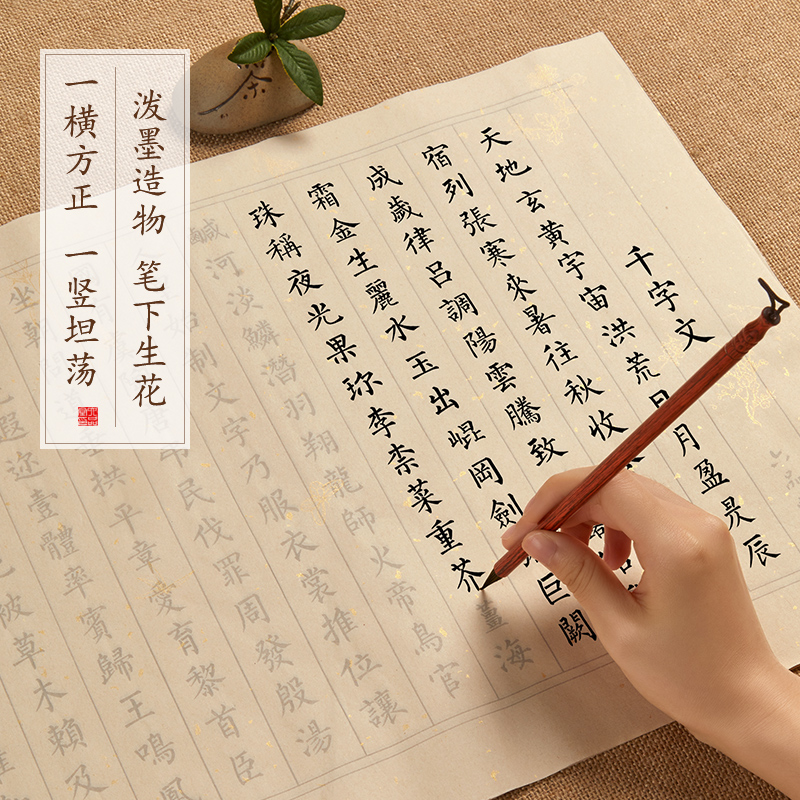 泼墨造物 笔下生花
一横方正 一竖坦荡
茶
千字文
天地玄黄宇宙洪荒日月盈昃辰
宿列張寒來暑往秋收
成歲律呂調陽雲騰致
霜金生麗水玉出崐岡劍巨闕
珠稱夜光果珎李柰菜重芥薑海
鹹河淡鱗潛羽翔龍師火帝鳥官
始制文字乃服衣裳推位讓
民伐罪周發殷湯
坐朝道垂拱平章愛育黎首臣
遐迩壹體率賓歸王鳴鳳
被草木賴及